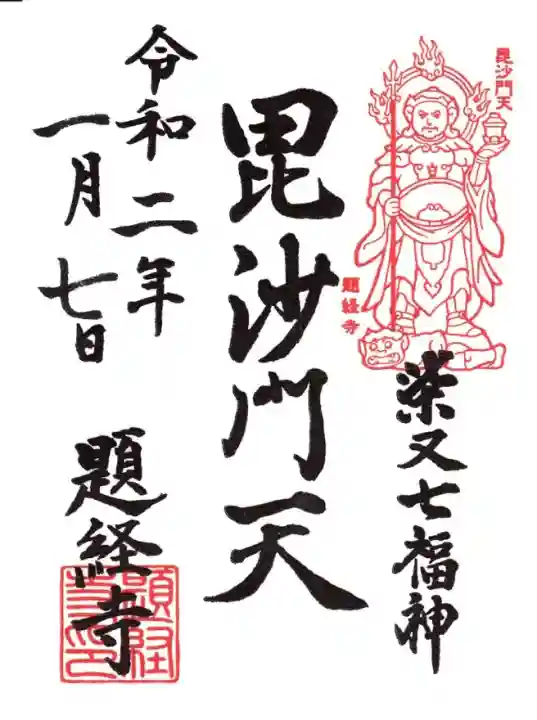 毘沙門天
題経寺
柴又七福神
毘沙門天
令和二年
一月七日
題経寺
題経
寺印